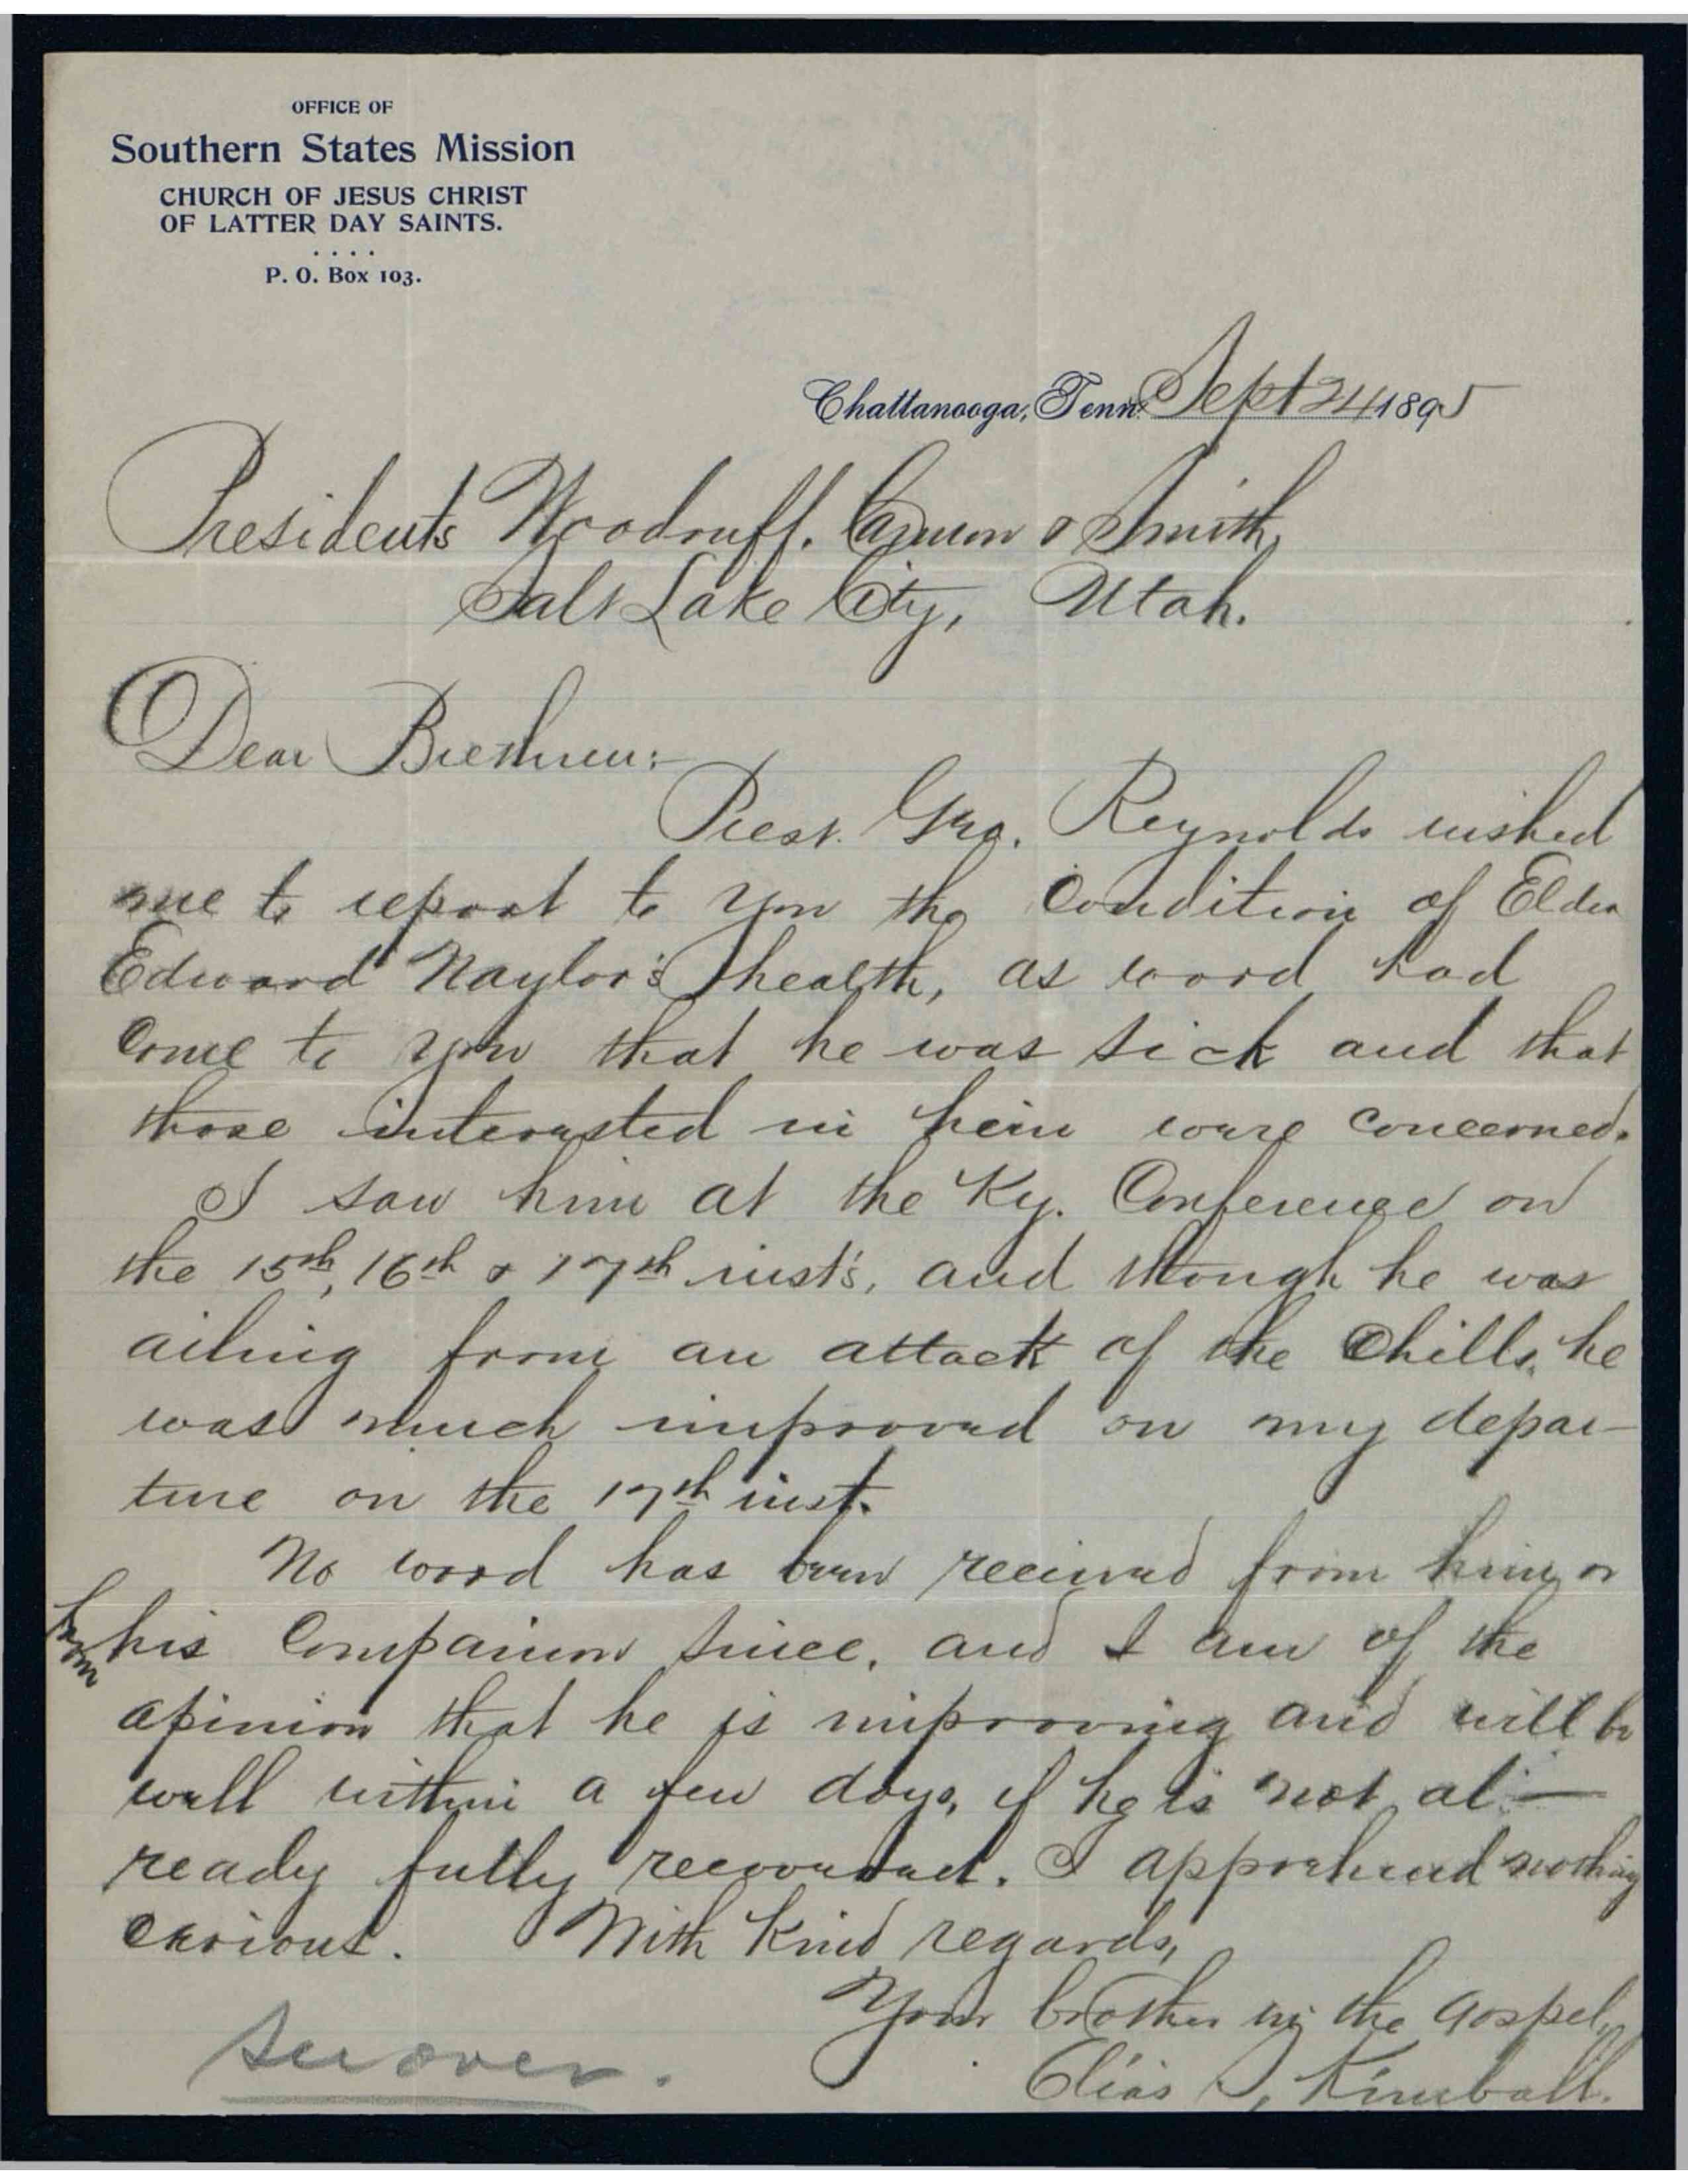 OFFICE OF
Southern States Mission
CHURCH OF JESUS CHRIST
OF LATTER DAY SAINTS.
. . . .
P. O. Box 103.
Chattanooga, Tenn. Sept 24 1895
Presidents Woodruff. Cannon & Smith,
Salt Lake City, Utah.
Dear Brethren:
Prest. Geo. Reynolds wished
me to report to you the condition of Elder
Edward Naylor's health, as word had
come to you that he was sick and that
those interested in him were concerned.
I saw him at the Ky. Conference on
the 15th, 16th & 17th inst's, and though he was
ailing from an attack of the Chills, he
was much improved on my depar-
ture on the 17th inst.
No word has been received from him or
from his Companion since, and I am of the
opinion that he is improving and will be
well within a few days, if he is not al-
ready fully recovered. I apprehend nothing
serious. With kind regards,
Your brother in the Gospel,
Elias S. Kimball.
See over.